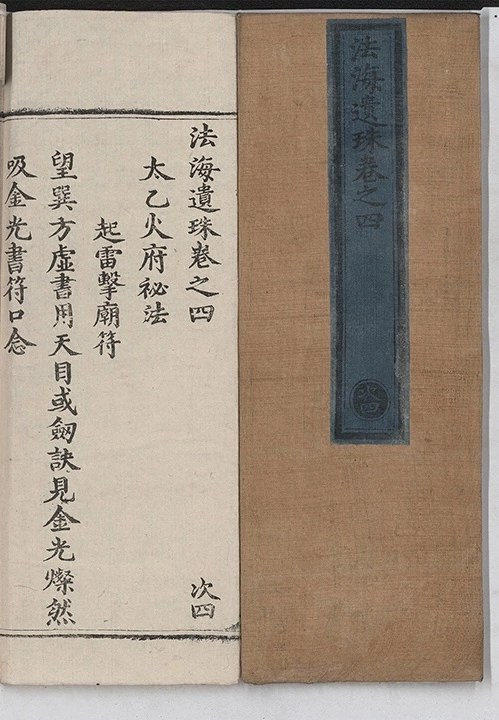 法海遺珠卷之四
次四
法海遺珠卷之四
次四
太乙火府祕法
起雷擊廟符
望巽方虛書用天目或劒訣見金光燦然
吸金光書符口念